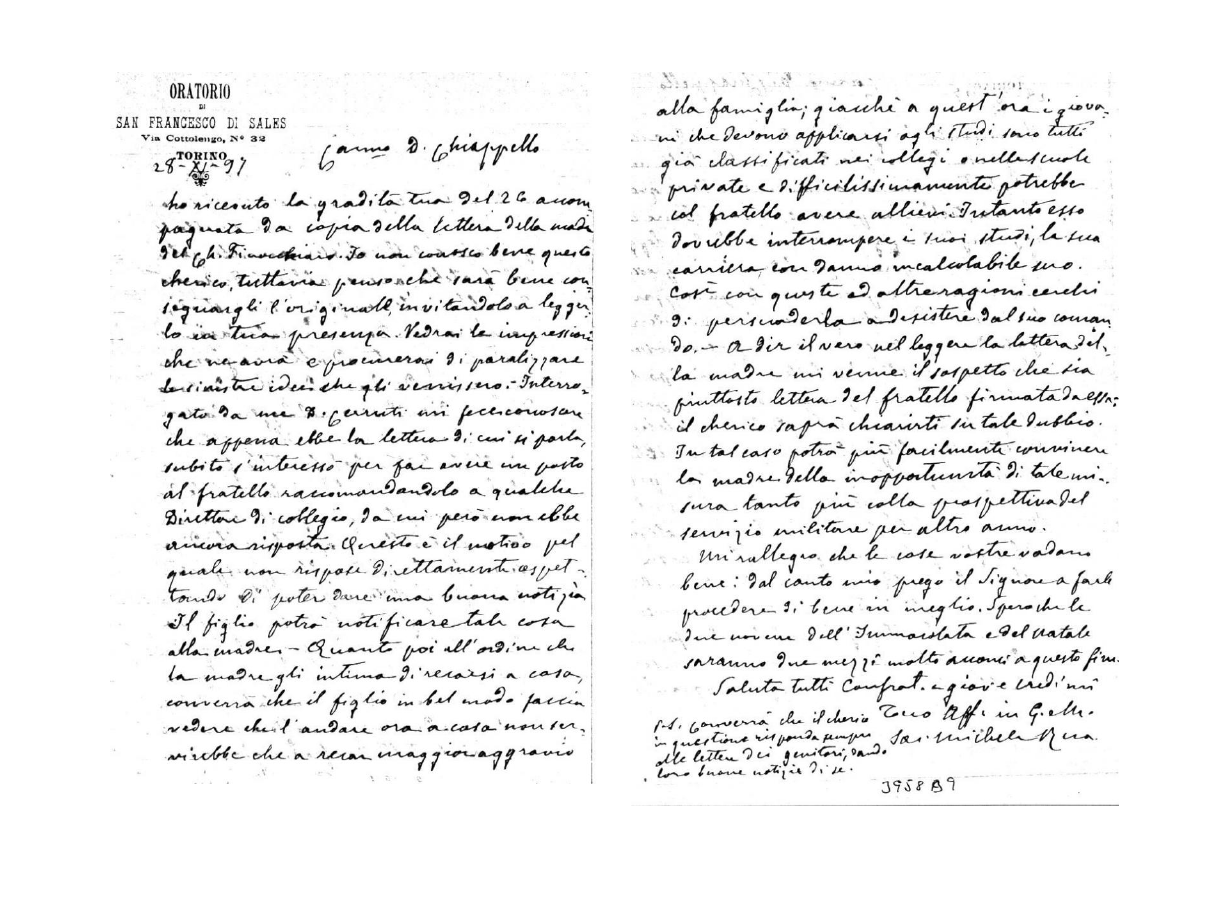 ORATORIO
DI
SAN FRANCESCO DI SALES
Via Cottolengo, N° 32
TORINO
28-XI-97
Carmo D. Chiappello
ho ricevuto la gradita tua del 26 accom
pagnata da copia della lettera della madre
del Ch. Finocchiaro. Io non conosco bene questo
cherico, tuttavia penso che sarà bene con
segnargli l'originale, invitandolo a legger
lo in tua presenza. Vedrai le impressioni
che ne avrà e procurerai di paralizzare
le sinistre idee che gli venissero. - Interro-
gato da me D. Cerruti mi fece conoscere
che appena ebbe la lettera di cui si parla,
subito s'interessò per far avere un posto
al fratello raccomandandolo a qualche
Direttore di collegio, da cui però non ebbe
ancora risposta. Questo è il motivo pel
quale non rispose direttamente aspet-
tando di poter dare una buona notizia
Il figlio potrà notificare tale cosa
alla madre. - Quanto poi all'ordine che
la madre gli intima di recarsi a casa,
converrà che il figlio in bel modo faccia
vedere che l'andare ora a casa non ser-
virebbe che a recar maggior aggravio
alla famiglia; giacchè a quest'ora i giova-
ni che devono applicarsi agli studi sono tutti
già classificati nei collegi o nelle scuole
private e difficilissimamente potrebbe
col fratello avere allievi. Intanto esso
dovrebbe interrompere i suoi studi, la sua
carriera con danno incalcolabile suo.
Così con queste ed altre ragioni cerchi
di persuaderla a desistere dal suo coman
do. - A dir il vero nel leggere la lettera del-
la madre mi venne il sospetto che sia
piuttosto lettera del fratello firmata da essa:
il cherico saprà chiarirti su tale dubbio.
In tal caso potrà più facilmente convincere
la madre della inopportunità di tale mi-
sura tanto più colla prospettiva del
servizio militare per altro anno.
Mi rallegro che le cose vostre vadano
bene: dal canto mio prego il Signore a farle
procedere di bene in meglio. Spero che le
due novene dell'Immacolata e del Natale
saranno due mezzi molto acconci a questo fine.
Saluta tutti Confrat. e giov. e credimi
Tuo Aff. in G. e M.
Sac. Michele Rua
P.S. Converrà che il cherico
in questione risponda sempre
alle lettere dei genitori, dando
loro buone notizie di se.
3958 B9